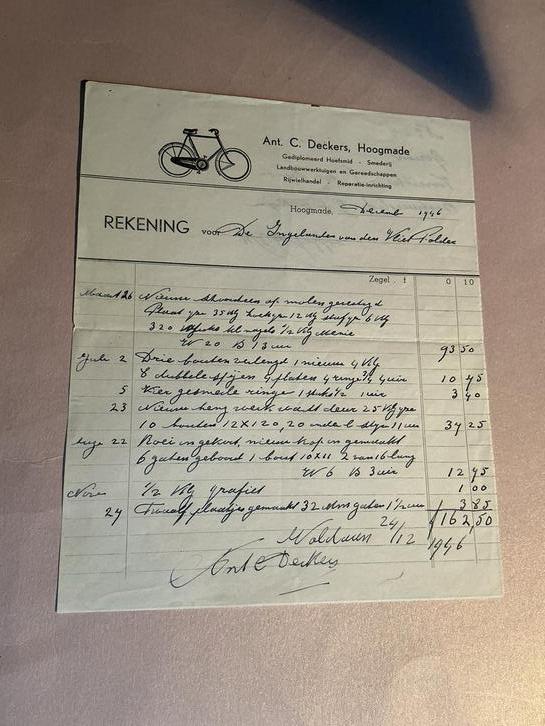 Ant. C. Deckers, Hoogmade
Gediplomeerd Hoefsmid - Smederij
Landbouwwerktuigen en Gereedschappen
Rijwielhandel - Reparatie-inrichting
Hoogmade, Decemb 1946
REKENING voor De Ingelanden van den Vliet Polder
Zegel . f 0 10
Maart 26 Nieuwe op molen
Plaat 35 Kg 12 Kg 6 Kg
320 1/2 Kg Menie
W 20 B 13 uur 93 50
Julie 2 Drie bouten verlengd 1 nieuwe 4 Kg
8 dubbele 4 platen 4 ringe 3/4 4 uur 10 45
5 Vier gesmede ringe 1 uur 3 40
23 Nieuwe heng werk deur 25 Kg
10 bouten 12X120, 20 11 uur 34 25
Aug 22 Roei ingekort, nieuwe kop in gemaakt
6 gaten geboord 1 bout 10X11 2 van 16 lang
W 6 B 3 uur 12 45
Nov 1/2 Kg grafiet 1 00
24 Twaalf plaatjes gemaakt 32 Mm gaten 1 1/2 uur 3 85
162,50
Voldaan 24/12 1946
Ant C Deckers